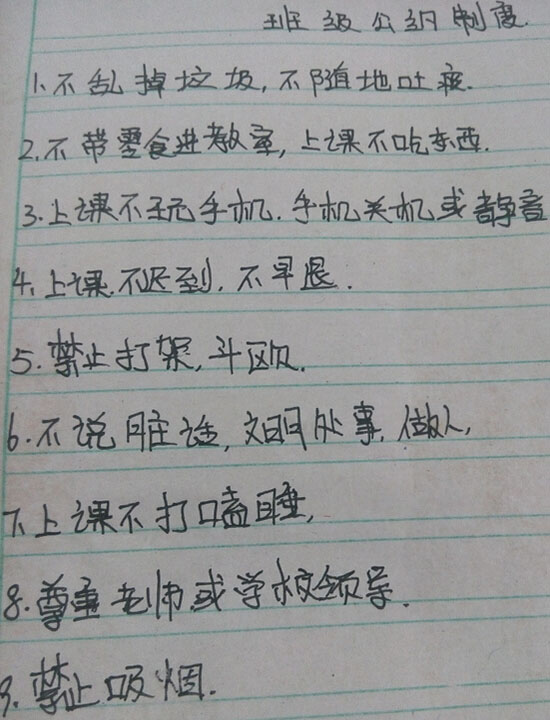 班级公约制度.
1.不乱掉垃圾,不随地吐痰.
2.不带零食进教室,上课不吃东西.
3.上课不玩手机.手机关机或静音
4.上课不迟到.不早退.
5.禁止打架,斗欧.
6.不说脏话,文明处事,做人,
7.上课不打嗑睡,
8.尊重老师或学校领导.
9.禁止吸烟.